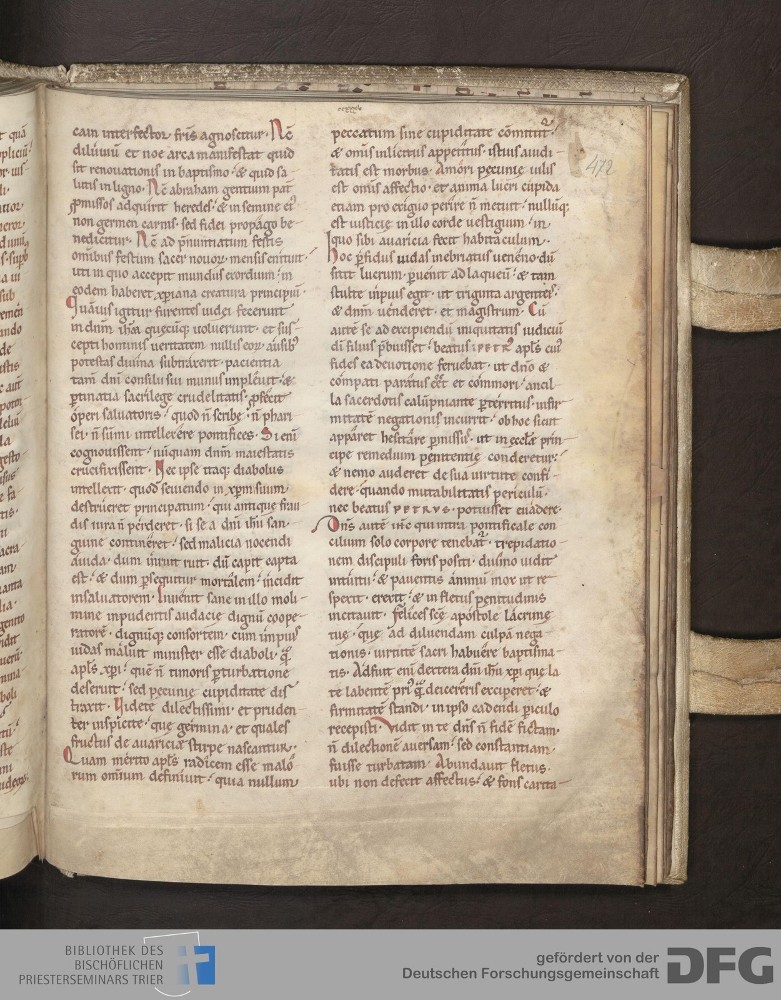 cain interfector fr̄is agnoscitur. Nē
diluuiū et noe arca manifestat quid
sit renouationis in baptismo. & quid sa-
lutis in ligno. Nē abraham gentium pat̄
ꝓmissos adquirit heredes. & in semine ei'
non germen carnis. sed fidei propago be-
nedicitur. Nē ad p̄nuntiatum festis
omībus festum sacer nouor mensis enituit.
uti in quo accepit mundus exordium. in
eodem haberet xp̄iana creatura principiū.
Quāuis igitur furentes iudei fecerunt
in dn̄m ih̄m quęcūq; uoluerunt. et sus-
cepti hominis ueritatem nullis eor ausib'
potestas diuina subtraxerit. pacientia
tam̄ dn̄i consilii sui munus impleuit. &
ꝑtinatia sacrilegę crudelitatis. ꝓfecit
operi saluatoris. quod n̄ scribę. n̄ phari
sei. n̄ sūmi intellexere pontifices. Si enī
cognouissent. nūquam dn̄m maiestatis
crucifixissent. Nec ipse itaq; diabolus
intellexit. quod seuiendo in xp̄m suum
destrueret principatum. qui antiquę frau
dis iura n̄ perderet. si se a dn̄i ih̄u san-
guine contineret. sed malicia nocendi
auida. dum irruit ruit. dū capit capta
est. & dum ꝑsequitur mortalem. incidit
in saluatorem. Inuenit sane in illo moli-
mine inpudentis audacię dignū coope-
ratorē. dignūq; consortem. cum impius
iudas maluit minister esse diaboli. quā
apl̄s xp̄i. quē n̄ timoris ꝑturbatione
deseruit. sed pecunię cupiditate dis
traxit. Videte dilectissimi. et pruden
ter inspicite. quę germina. et quales
fructus de auaricię stirpe nascantur.
Quam merito apl̄s radicem esse malor̄
rum omnium definiuit. quia nullum
472
peccatum sine cupiditate cōmittit'.
& omīs inlicitus appetitus. istius auidi-
tatis est morbus. Amori pecunię uilis
est omīs affectio. et anima lucri cupida
etiam pro exiguo perire n̄ metuit. nullūq;
est iusticię in illo corde uestigium. in
quo sibi auaricia fecit habitaculum.
Hoc ꝑfidus iudas inebriatus ueneno. dū
sitit lucrum. ꝑuenit ad laqueū. & tam
stulte inpius egit. ut triginta argenteis.
& dn̄m uenderet. et magistrum. Cū
autē se ad excipiendū iniquitatis iudiciū
dī filius p̄buisset. beatus PETR' apl̄s cui'
fides ea deuotione feruebat. ut dn̄o &
cōpati paratus eēt et cōmori. ancil-
lę sacerdotis calūpniante ꝑterritus. infir
mitate negationis incurrit. ob hoc sicut
apparet hesitare ꝑmissus. ut in ecclā prin
cipe remedium penitentię conderetur.
& nemo auderet de sua uirtute confi-
dere. quando mutabilitatis periculū.
nec beatus PETRVS. potuisset euadere.
Dn̄s autē ih̄c qui intra pontificale con
cilium solo corpore tenebat'. trepidatio-
nem discipuli foris positi. diuino uidit
intuitu. & pauentis animū mox ut re
spexit. erexit. & in fletus penitudinis
incitauit. Felices scē apostole lacrimę
tuę. quę ad diluendam culpā nega
tionis. uirtutē sacri habuere baptisma-
tis. Adfuit enī dextera dn̄i ih̄u xp̄i quę la
te labentē pri' quā deicereris exciperet. &
firmitatē standi. in ipso cadendi ꝑiculo
recepisti. Vidit in te dn̄s n̄ fidē fictam.
n̄ dilectionē auersam. sed constantiam
fuisse turbatam. Abundauit fletus.
ubi non defecit affectus. & fons carita-
BIBLIOTHEK DES
BISCHÖFLICHEN
PRIESTERSEMINARS TRIER
gefördert von der
Deutschen Forschungsgemeinschaft
DFG